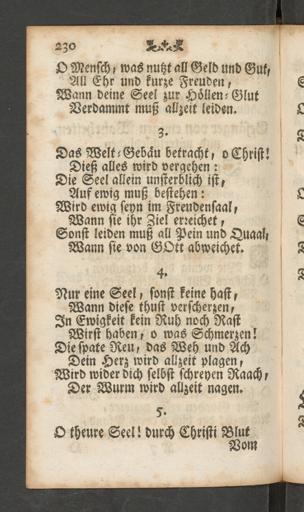 230
O Mensch, was nutzt all Geld und Gut,
All Ehr und kurze Freuden,
Wann deine Seel zur Höllen-Glut
Verdammt muß allzeit leiden.
3.
Das Welt-Gebäu betracht, o Christ!
Dieß alles wird vergehen:
Die Seel allein unsterblich ist,
Auf ewig muß bestehen:
Wird ewig seyn im Freudensaal,
Wann sie ihr Ziel erreichet,
Sonst leiden muß all Pein und Quaal,
Wann sie von GOtt abweichet.
4.
Nur eine Seel, sonst keine hast,
Wann diese thust verscherzen,
In Ewigkeit kein Ruh noch Rast
Wirst haben, o was Schmerzen!
Die spate Reu, das Weh und Ach
Dein Herz wird allzeit plagen,
Wird wider dich selbst schreyen Raach,
Der Wurm wird allzeit nagen.
5.
O theure Seel! durch Christi Blut
Vom